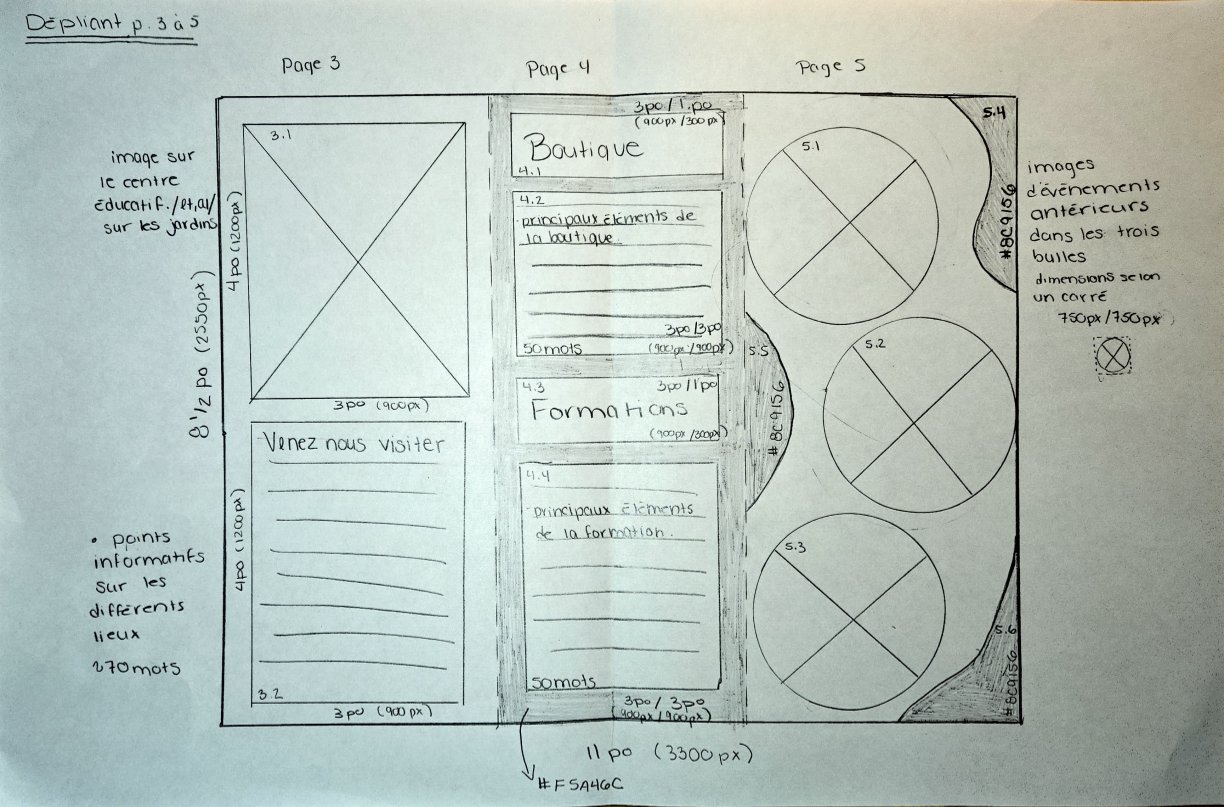 Dépliant p. 3 à 5
Page 3
Page 4
Page 5
image sur
le centre
éducatif./et,ou/
sur les jardins
8 1/2 po (2550px)
3.1
4po (1200px)
3po (900px)
Venez nous visiter
4po (1200px)
3.2
3po (900px)
• points
informatifs
sur les
différents
lieux
~70mots
3po/1.po
(900px/300px)
Boutique
4.1
4.2
principaux éléments de
la boutique.
3po/3po
50mots
(900px/900px)
4.3
3po/1po
Formations
(900px/300px)
4.4
principaux éléments
de la formation.
50mots
3po/3po
(900px/900px)
11 po (3300px)
#F5A46C
5.1
5.2
5.3
5.4
#8C9156
5.5
#8C9156
5.6
#8C9156
images
d'évènements
antérieurs
dans les trois
bulles
dimensions selon
un carré
750px/750px